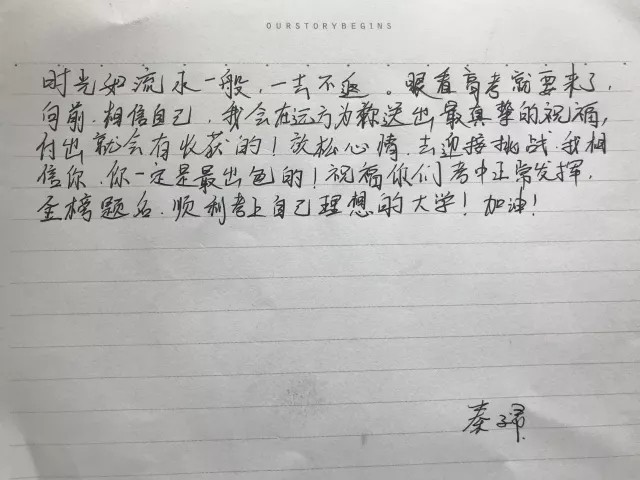 OURSTORYBEGINS
时光如流水一般，一去不返。眼看高考就要来了，
向前.相信自己，我会在远方为你送出最真挚的祝福，
付出就会有收获的！放松心情.去迎接挑战.我相
信你.你一定是最出色的！祝福你们考中正常发挥，
金榜题名.顺利考上自己理想的大学！加油！
秦